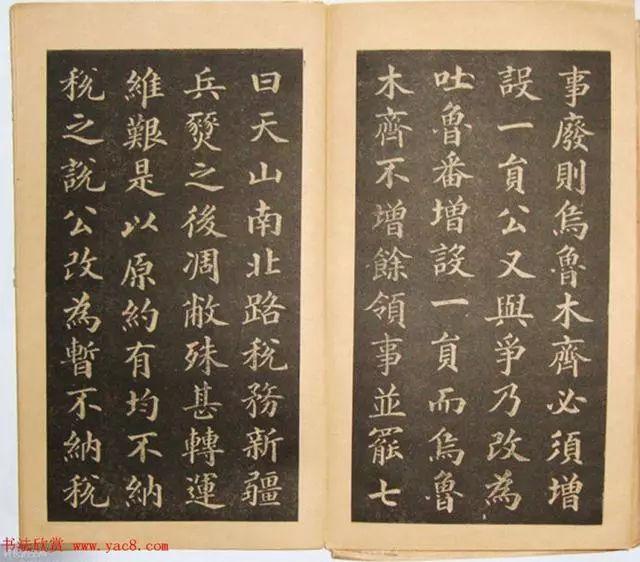 事廢則烏魯木齊必須增
設一員公又與爭乃改為
吐魯番增設一員而烏魯
木齊不增餘領事並罷七
曰天山南北路稅務新疆
兵燹之後凋敝殊甚轉運
維艱是以原約有均不納
稅之說公改為暫不納稅
书法欣赏 www.yac8.com